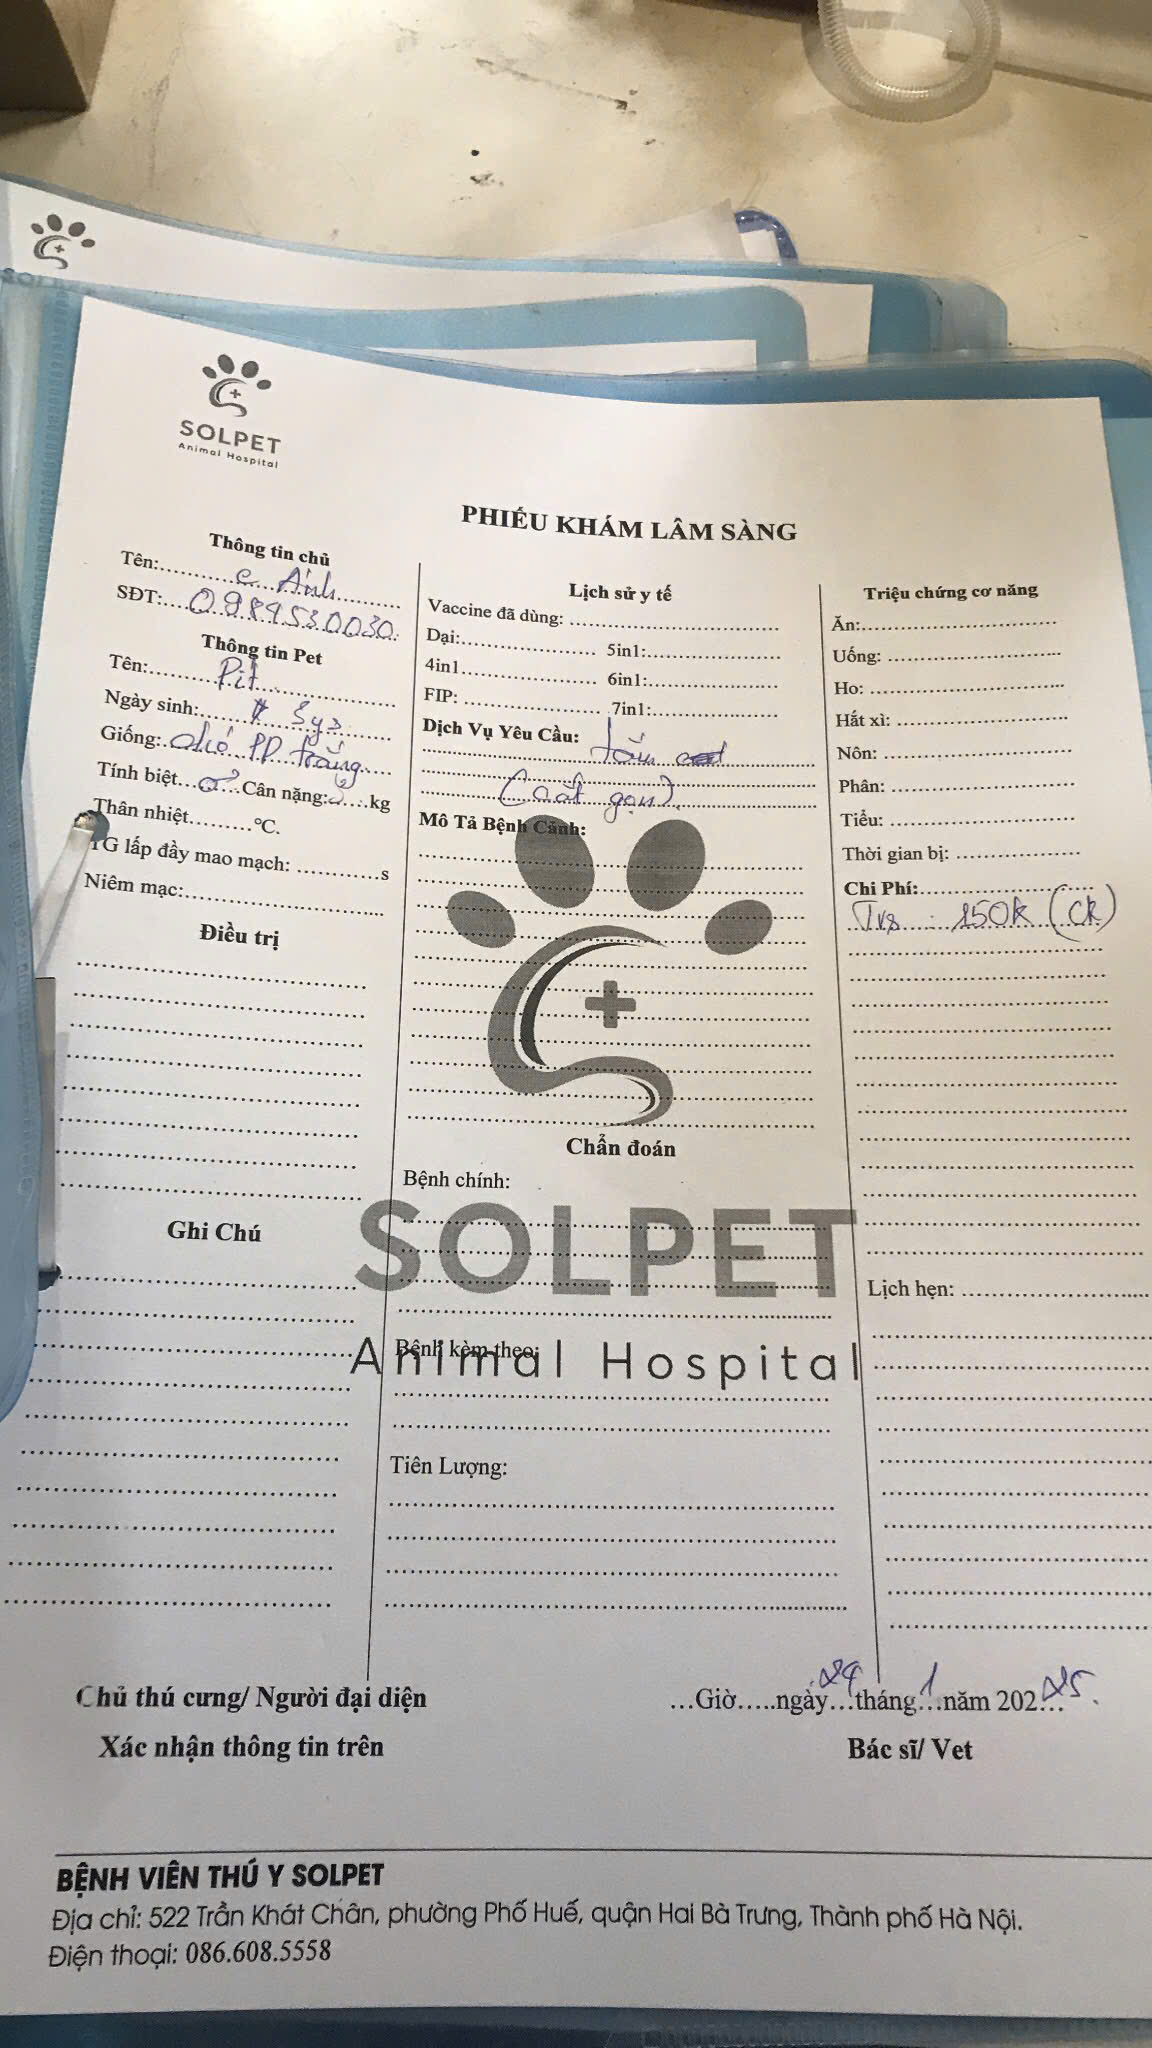 SOLPET
Animal Hospital
PHIẾU KHÁM LÂM SÀNG
Thông tin chủ
Tên: c Ánh
SĐT: 0989530030
Thông tin Pet
Tên: Pit
Ngày sinh: 3y
Giống: chó PD trắng
Tính biệt ♂ Cân nặng: kg
Thân nhiệt.........°C.
TG lấp đầy mao mạch: ............s
Niêm mạc:
Điều trị
Ghi Chú
Lịch sử y tế
Vaccine đã dùng:
Dại: 5in1:
4in1 6in1:
FIP: 7in1:
Dịch Vụ Yêu Cầu: tắm
(cắt gọn)
Mô Tả Bệnh Cảnh:
Chẩn đoán
Bệnh chính:
SOLPET
Bệnh kèm theo:
Animal Hospital
Tiên Lượng:
Triệu chứng cơ năng
Ăn:
Uống:
Ho:
Hắt xì:
Nôn:
Phân:
Tiểu:
Thời gian bị:
Chi Phí:
Tvs : 150k (CK)
Lịch hẹn:
Chủ thú cưng/ Người đại diện
Xác nhận thông tin trên
...Giờ.....ngày 24 tháng 1 năm 202 25.
Bác sĩ/ Vet
BỆNH VIÊN THÚ Y SOLPET
Địa chỉ: 522 Trần Khát Chân, phường Phố Huế, quận Hai Bà Trưng, Thành phố Hà Nội.
Điện thoại: 086.608.5558